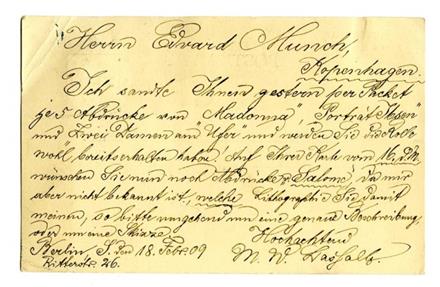 Herrn Edvard Munch,
Kopenhagen.
Ich sandte Ihnen gestern per Packet
je 5 Abdrücke von "Madonna", "Porträt Ibsen"
und "Zwei Damen am Ufer" und werden Sie die Rolle
wohl bereits erhalten haben. Auf Ihrer Karte vom 16. d. M.
wünschen Sie nun noch Abdrücke v. "Salome", da mir
aber nicht bekannt ist, welche Lithographie Sie damit
meinen, so bitte umgehend um eine genaue Beschreibung,
oder um eine Skizze.
Hochachtend
Berlin, S. den 18. Febr. 09
M. W. Lassally.
Ritterstr. 26.